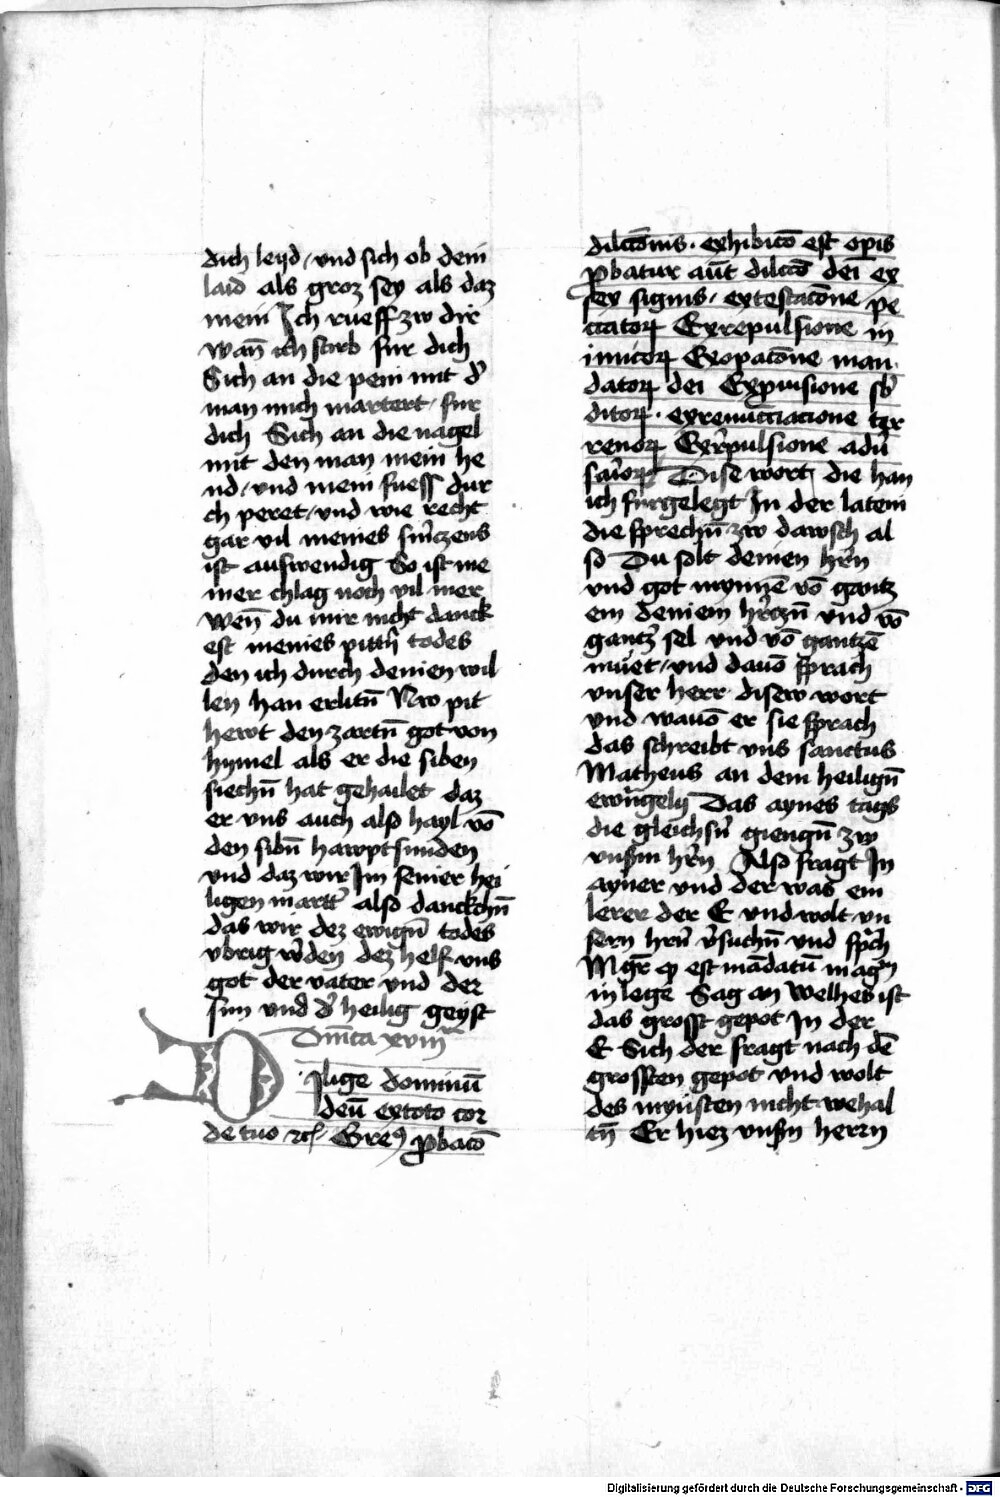 dich leyd / vnd sich ob dein
laid als groz sey als daz
mein Ich rueff zw dir
wan̄ ich stirb fur dich
Sich an die pein mit d̛
man mich martert / fur
dich Sich an die nagel
mit den man mein he
nd / vnd mein fuess dur
ch peret / vnd wie recht
gar vil meines sm̛czens
ist auswendig So ist me
iner chlag noch vil mer
wen̄ du mir nicht danck
est meines pittn̄ todes
den ich durch deinen wil
len han erlitn̄ Nw pit
hewt den zartn̄ got von
hymel als er die siben
siechn̄ hat gehailet daz
er vns auch also hayl vō
den sibn̄ hawptsunden
vnd daz wir Im seiner hei
ligen martt̛ also danckchn̄
das wir dez ewign̄ todes
vbrig w̛den dez helf vns
got der vater vnd der
sun vnd d̛ heilig geyst
Dm̄ica xviii
Dilige dominū
deū ex toto cor
de tuo ⁊c̄ / Gre⁹ ꝓbacō
dilcc̄onis · exhibicō est op̄is
ꝓbatur aūt dilcc̄o dei ex
sex signis / ex testac̄one pe
ccatoꝝ Ex repulsione in
imicoꝝ Ex opac̄one man
datoꝝ dei Ex
ditoꝝ · ex renuncciacione ter
renoꝝ Ex r̛pulsione adư
saioꝝ Dise wort / die han
ich furgelegt In der latein
die sprechn̄ zw dawsch al
so Du solt deinen hr̄n
vnd got mynnē vō gantz
em deinem hr̛czn̄ vnd vō
gantz̛ sel vnd vō gantzē
muet / vnd dauō sprach
vnser herr disew wort
vnd wauō er sie sprach
das schreibt vns sanctus
Matheus an dem heilign̄
ewangely Das aynes tags
die gleichsn̛ giengn̄ zw
vnsm̄ hr̄n Also fragt In
ayner vnd der was ein
lerer der E vnd wolt vn
sern hrn̄ v̛suchn̄ vnd sp̄ch
Mgr̄ qͦ est mādatū magn̄
in lege Sag an welhes ist
das grosst gepot In der
E Sich der fragt nach dē
grossten gepot vnd wolt
des mynsten nicht wehal
tn̄ Er hiez vnsn̄ herrn
Digitalisierung gefördert durch die Deutsche Forschungsgemeinschaft - DFG